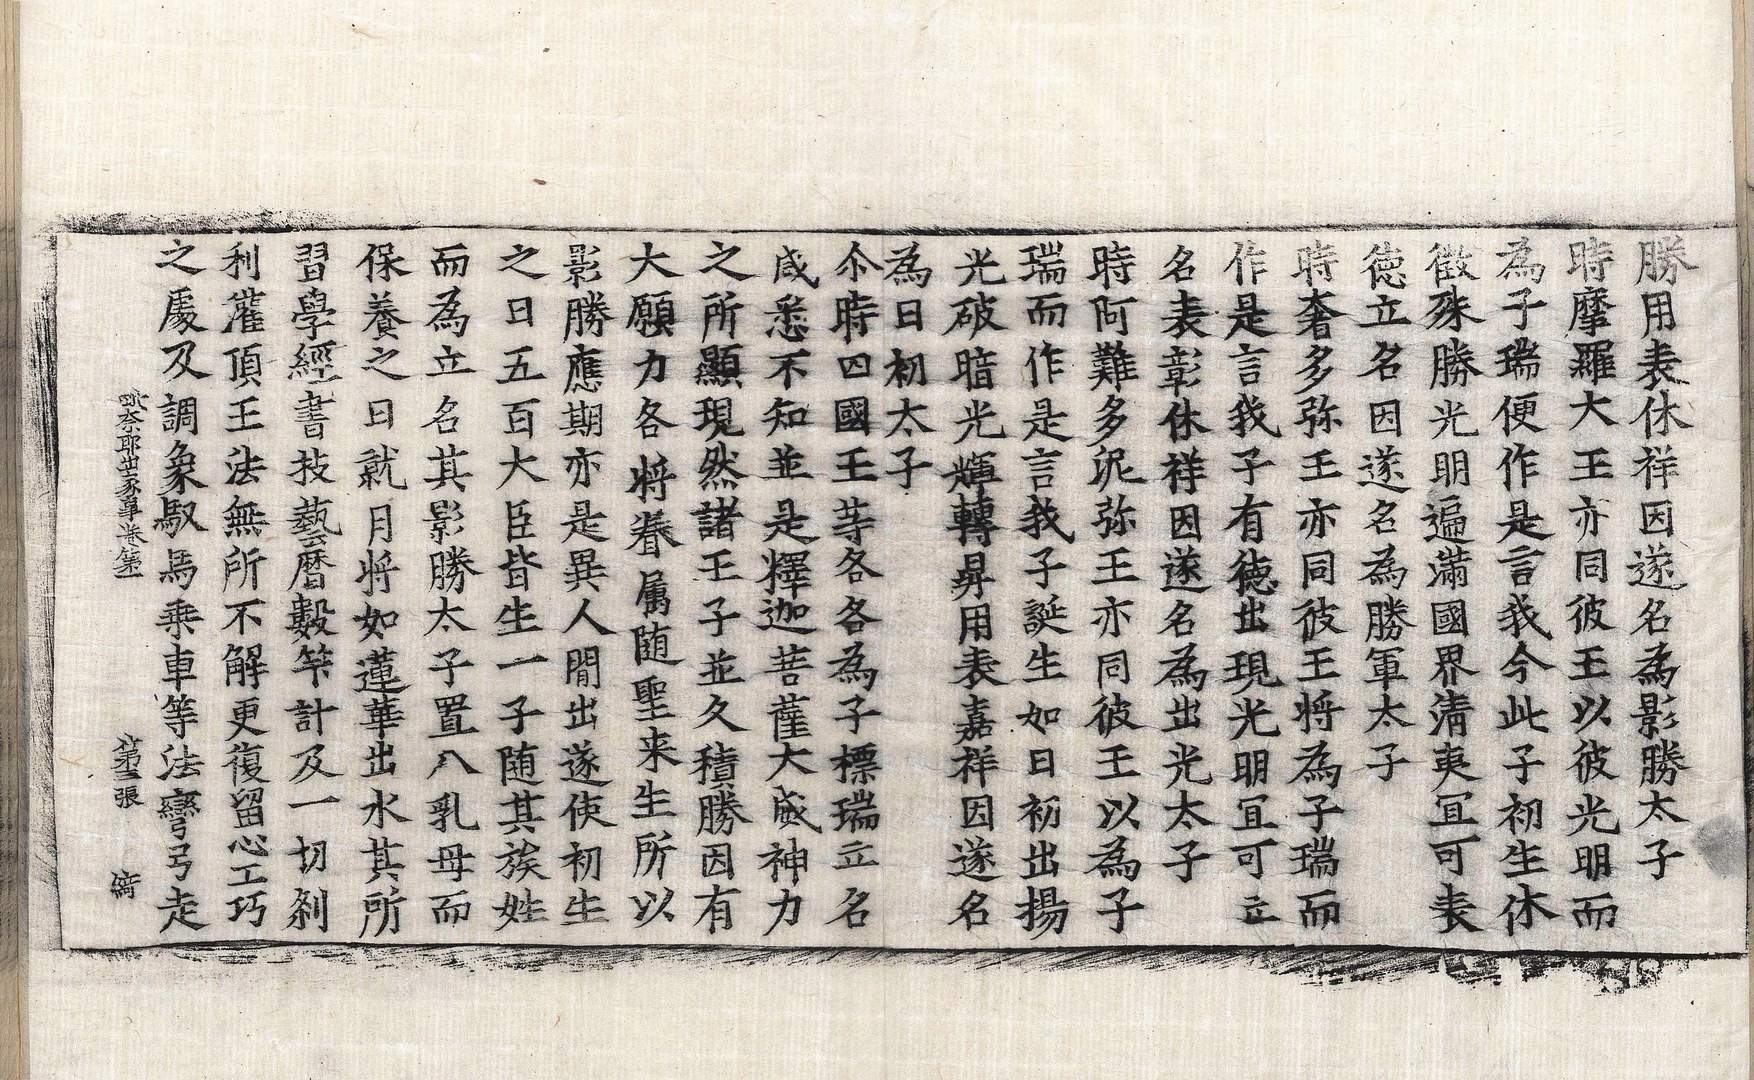 勝用表休祥因遂名為影勝太子
時摩羅大王亦同彼王以彼光明而
為子瑞便作是言我今此子初生休
徵殊勝光明遍滿國界清夷冝可表
德立名因遂名為勝軍太子
時奢多弥王亦同彼王將為子瑞而
作是言我子有德出現光明冝可立
名表彰休祥因遂名為出光太子
時阿難多泥弥王亦同彼王以為子
瑞而作是言我子誕生如日初出揚
光破暗光輝轉昇用表嘉祥因遂名
為日初太子
尒時四國王等各各為子標瑞立名
咸悉不知並是釋迦菩薩大威神力
之所顯現然諸王子並久積勝因有
大願力各將眷属随聖来生所以
影勝應期亦是異人間出遂使初生
之日五百大臣皆生一子随其族姓
而為立名其影勝太子置八乳母而
保養之日就月將如蓮華出水其所
習學經書技藝曆數筭計及一切剎
利灌頂王法無所不解更復留心工巧
之處及調象馭馬乗車等法彎弓走
毗奈耶出家事卷第一 第三張